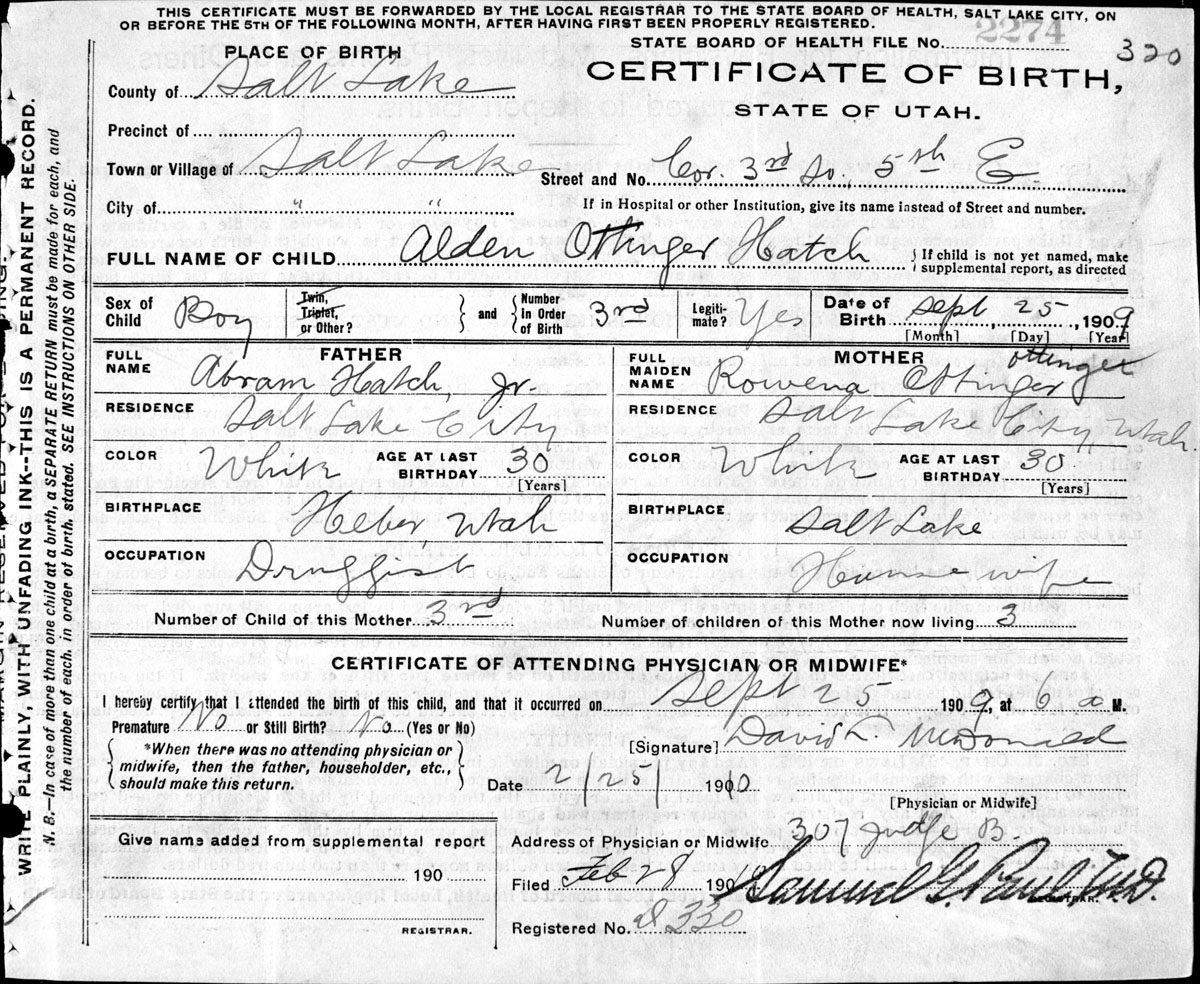 THIS CERTIFICATE MUST BE FORWARDED BY THE LOCAL REGISTRAR TO THE STATE BOARD OF HEALTH, SALT LAKE CITY, ON
OR BEFORE THE 5TH OF THE FOLLOWING MONTH, AFTER HAVING FIRST BEEN PROPERLY REGISTERED.
STATE BOARD OF HEALTH FILE NO. 2274
320
PLACE OF BIRTH
CERTIFICATE OF BIRTH,
STATE OF UTAH.
County of Salt Lake
Precinct of
Town or Village of Salt Lake
Street and No. Cor. 3rd So., 5th E
City of " "
If in Hospital or other Institution, give its name instead of Street and number.
FULL NAME OF CHILD Alden Ottinger Hatch
If child is not yet named, make
supplemental report, as directed
Sex of Child Boy
Twin, Triplet, or Other?
and
Number in Order of Birth 3rd
Legiti-mate? Yes
Date of Birth Sept 25, 1909
[Month] [Day] [Year]
FATHER
FULL NAME Abram Hatch, Jr.
RESIDENCE Salt Lake City
COLOR White
AGE AT LAST BIRTHDAY 30
[Years]
BIRTHPLACE Heber, Utah
OCCUPATION Druggist
MOTHER Ottinger
FULL MAIDEN NAME Rowena Ottinger
RESIDENCE Salt Lake City Utah.
COLOR White
AGE AT LAST BIRTHDAY 30
[Years]
BIRTHPLACE Salt Lake
OCCUPATION Housewife
Number of Child of this Mother 3rd
Number of children of this Mother now living 3
CERTIFICATE OF ATTENDING PHYSICIAN OR MIDWIFE*
I hereby certify that I attended the birth of this child, and that it occurred on Sept 25 1909, at 6 a M.
Premature No or Still Birth? No (Yes or No)
*When there was no attending physician or
midwife, then the father, householder, etc.,
should make this return.
[Signature] David L. McDonald
Date 2/25/1910
[Physician or Midwife]
Give name added from supplemental report
190
REGISTRAR.
Address of Physician or Midwife 307 Judge B.
Filed Feb 28 190
Samuel G. Paul M.D.
REGISTRAR.
Registered No. 330
WRITE PLAINLY, WITH UNFADING INK--THIS IS A PERMANENT RECORD.
N. B.--In case of more than one child at a birth, a SEPARATE RETURN must be made for each, and
the number of each, in order of birth, stated. SEE INSTRUCTIONS ON OTHER SIDE.